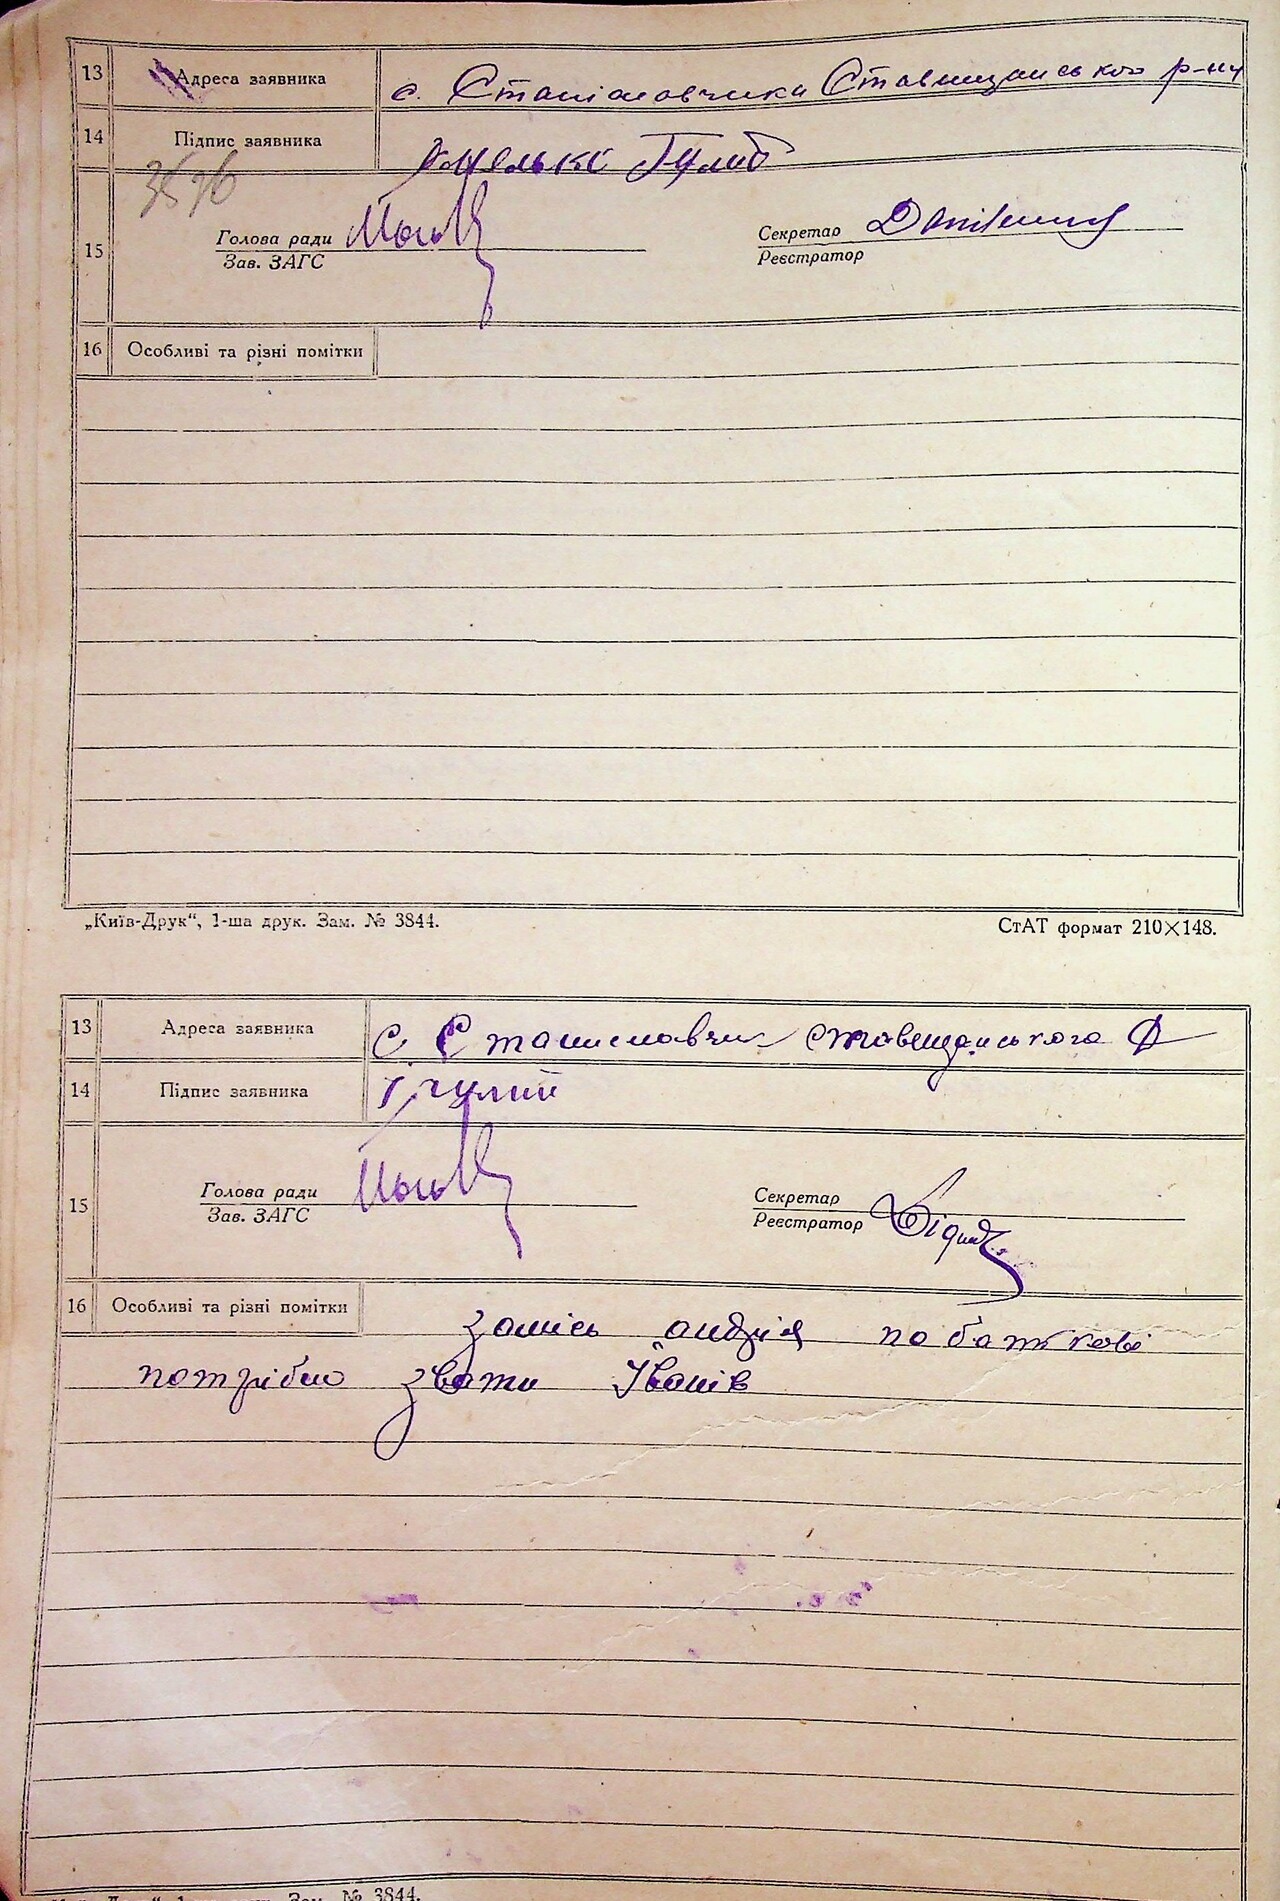 13 Адреса заявника с. Станіславчика Ставищанського р-ну
14 Підпис заявника
3596
15 Голова ради Секретар
Зав. ЗАГС Реєстратор
16 Особливі та різні помітки
„Київ-Друк“, 1-ша друк. Зам. № 3844. СтАТ формат 210×148.
13 Адреса заявника с. Станиславчик Ставещанського
14 Підпис заявника Гулий
15 Голова ради Секретар
Зав. ЗАГС Реєстратор
16 Особливі та різні помітки замісь андрія по баткові
потрібно звати Іванів
Зам. № 3844.